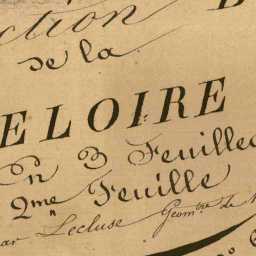 ction
de la
ELOIRE
En 3 Feuilles
2me Feuille
par Lecluse Geom.tre de